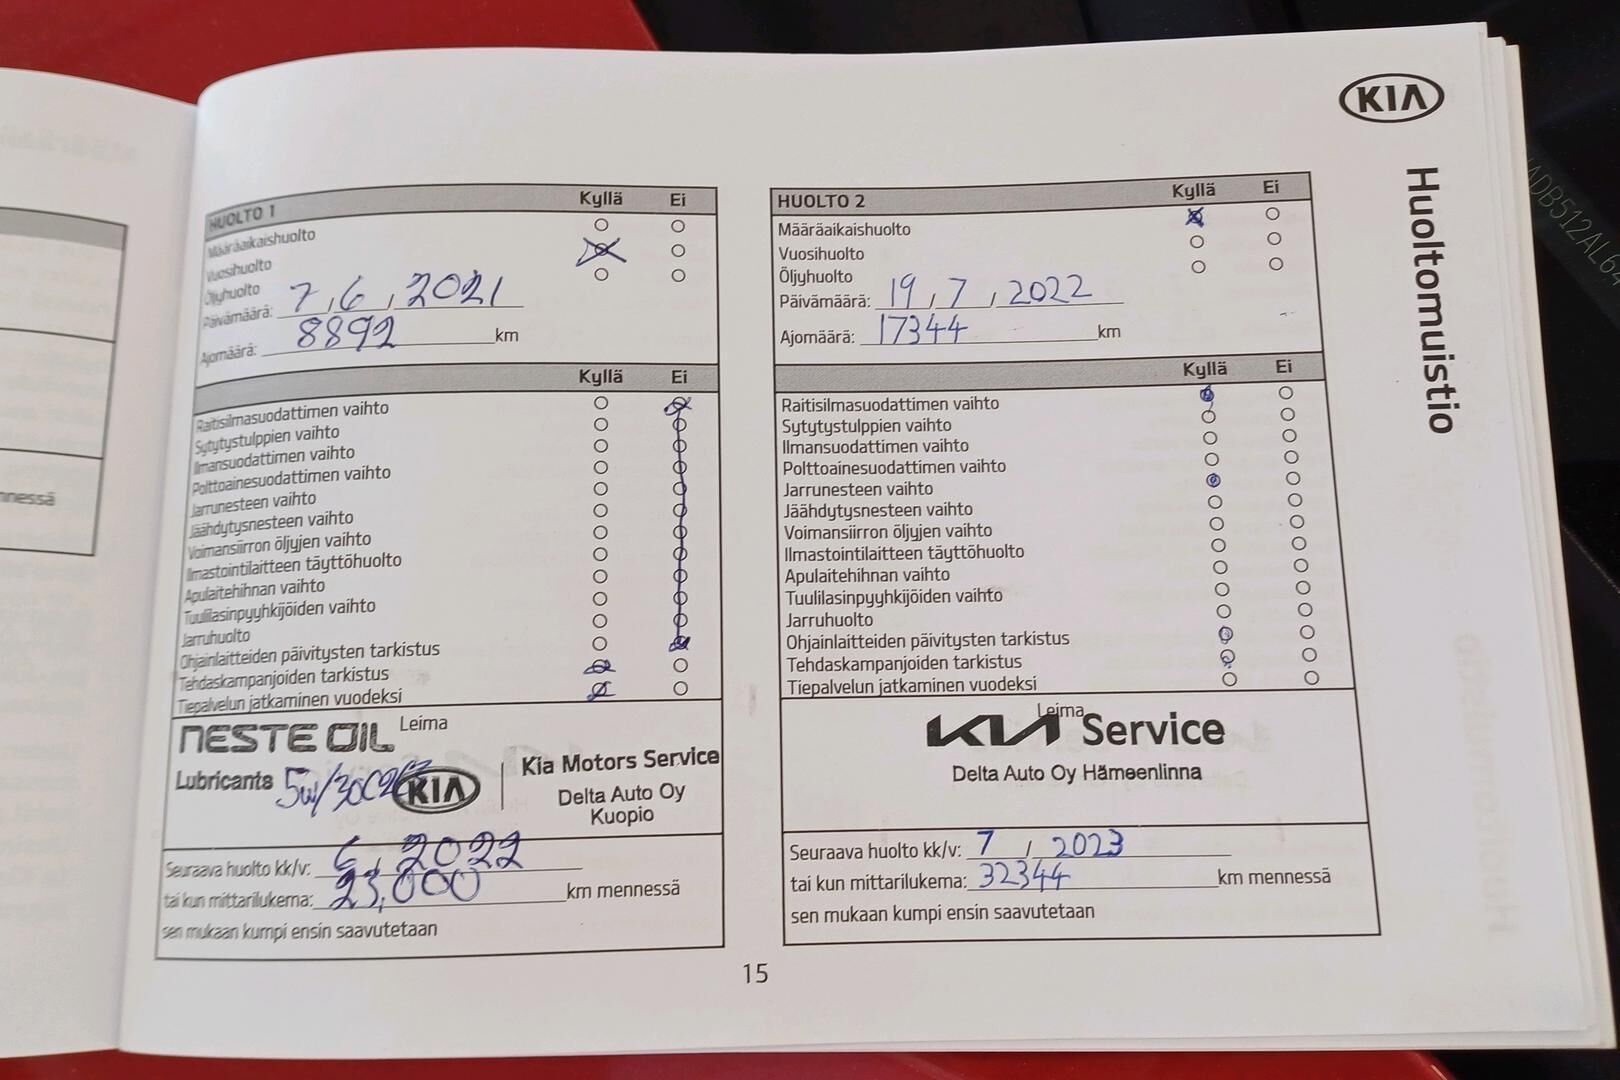 KIA
Huoltomuistio
nnessä
HUOLTO 1 Kyllä Ei
Määräaikaishuolto
Vuosihuolto
Öljyhuolto
Päivämäärä: 7, 6, 2021
Ajomäärä: 8892 km
Kyllä Ei
Raitisilmasuodattimen vaihto
Sytytystulppien vaihto
Ilmansuodattimen vaihto
Polttoainesuodattimen vaihto
Jarrunesteen vaihto
Jäähdytysnesteen vaihto
Voimansiirron öljyjen vaihto
Ilmastointilaitteen täyttöhuolto
Apulaitehihnan vaihto
Tuulilasinpyyhkijöiden vaihto
Jarruhuolto
Ohjainlaitteiden päivitysten tarkistus
Tehdaskampanjoiden tarkistus
Tiepalvelun jatkaminen vuodeksi
NESTE OIL Leima
Lubricants 5w/30 KIA Kia Motors Service
Delta Auto Oy
Kuopio
Seuraava huolto kk/v: 6, 2022
tai kun mittarilukema: 23,000 km mennessä
sen mukaan kumpi ensin saavutetaan
HUOLTO 2 Kyllä Ei
Määräaikaishuolto
Vuosihuolto
Öljyhuolto
Päivämäärä: 19, 7, 2022
Ajomäärä: 17344 km
Kyllä Ei
Raitisilmasuodattimen vaihto
Sytytystulppien vaihto
Ilmansuodattimen vaihto
Polttoainesuodattimen vaihto
Jarrunesteen vaihto
Jäähdytysnesteen vaihto
Voimansiirron öljyjen vaihto
Ilmastointilaitteen täyttöhuolto
Apulaitehihnan vaihto
Tuulilasinpyyhkijöiden vaihto
Jarruhuolto
Ohjainlaitteiden päivitysten tarkistus
Tehdaskampanjoiden tarkistus
Tiepalvelun jatkaminen vuodeksi
Leima
KIA Service
Delta Auto Oy Hämeenlinna
Seuraava huolto kk/v: 7 / 2023
tai kun mittarilukema: 32344 km mennessä
sen mukaan kumpi ensin saavutetaan
15